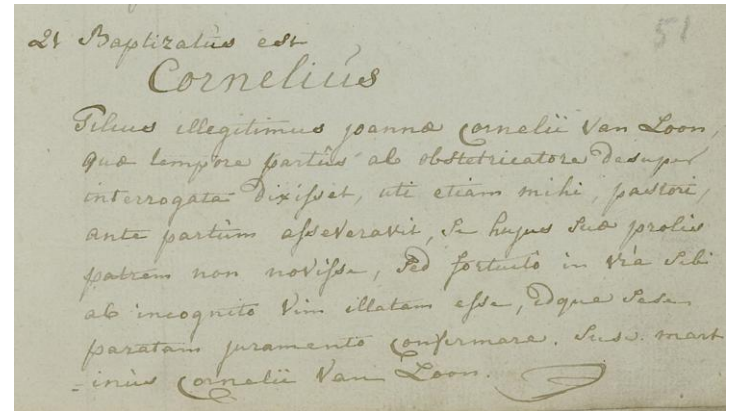 51
21 Baptizatus est
Cornelius
Filius illegitimus joannæ Cornelii Van Loon,
quæ tempore partûs ab obstetricatore desuper
interrogata dixisset, uti etiam mihi, pastori,
ante partum asseveravit, se hujus suæ prolis
patrem non novisse, sed fortuitò in viâ sibi
ab incognito vim illatam esse, idque sese
paratam juramento confirmare. Susc. mart
=inus Cornelii Van Loon.